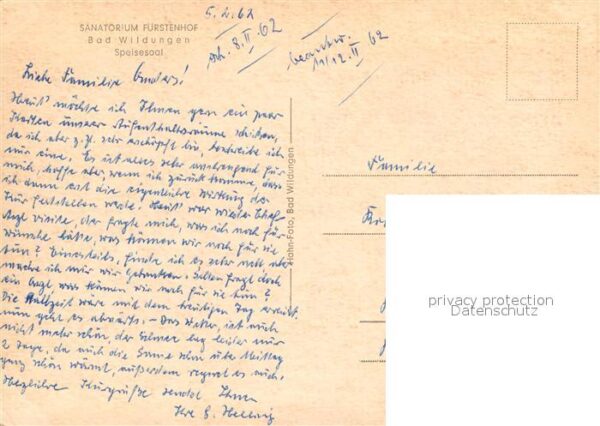 SANATORIUM FÜRSTENHOF
Bad Wildungen
Speisesaal
5.2.62
erh. 8.II 62
beantw.
11/12.II 62
Liebe Familie
Heut' möchte ich Ihnen gern ein paar
Karten unserer Aufenthaltsräume schicken,
da ich aber z. Zt. sehr erschöpft bin, schreibe ich
nur eine. Es ist alles sehr anstrengend für
mich, hoffe aber, wenn ich zurück komme, dass
ich dann erst die eigentliche Wirkung der
Kur feststellen werde! Heut' war wieder Chef-
Arzt visite, der fragte mich, was ich noch für
Wünsche hätte, was können wir noch für Sie
tun? Einesteils, finde ich es sehr nett aber
mache ich mir Gedanken. Selten fragt doch
ein Arzt, was können wir noch für Sie tun?
Die Halbzeit wäre mit dem heutigen Tag erreicht
nun geht es abwärts. – Das Wetter, ist auch
nicht mehr schön, der Schnee lag leider nur
2 Tage, da auch die Sonne schon über Mittag
ganz schön wärmt, ausserdem regnet es auch.
Herzliche Kurgrüße sendet Ihnen
Ihre E. Hellwig
Hahn-Foto, Bad Wildungen
Familie
privacy protection
Datenschutz